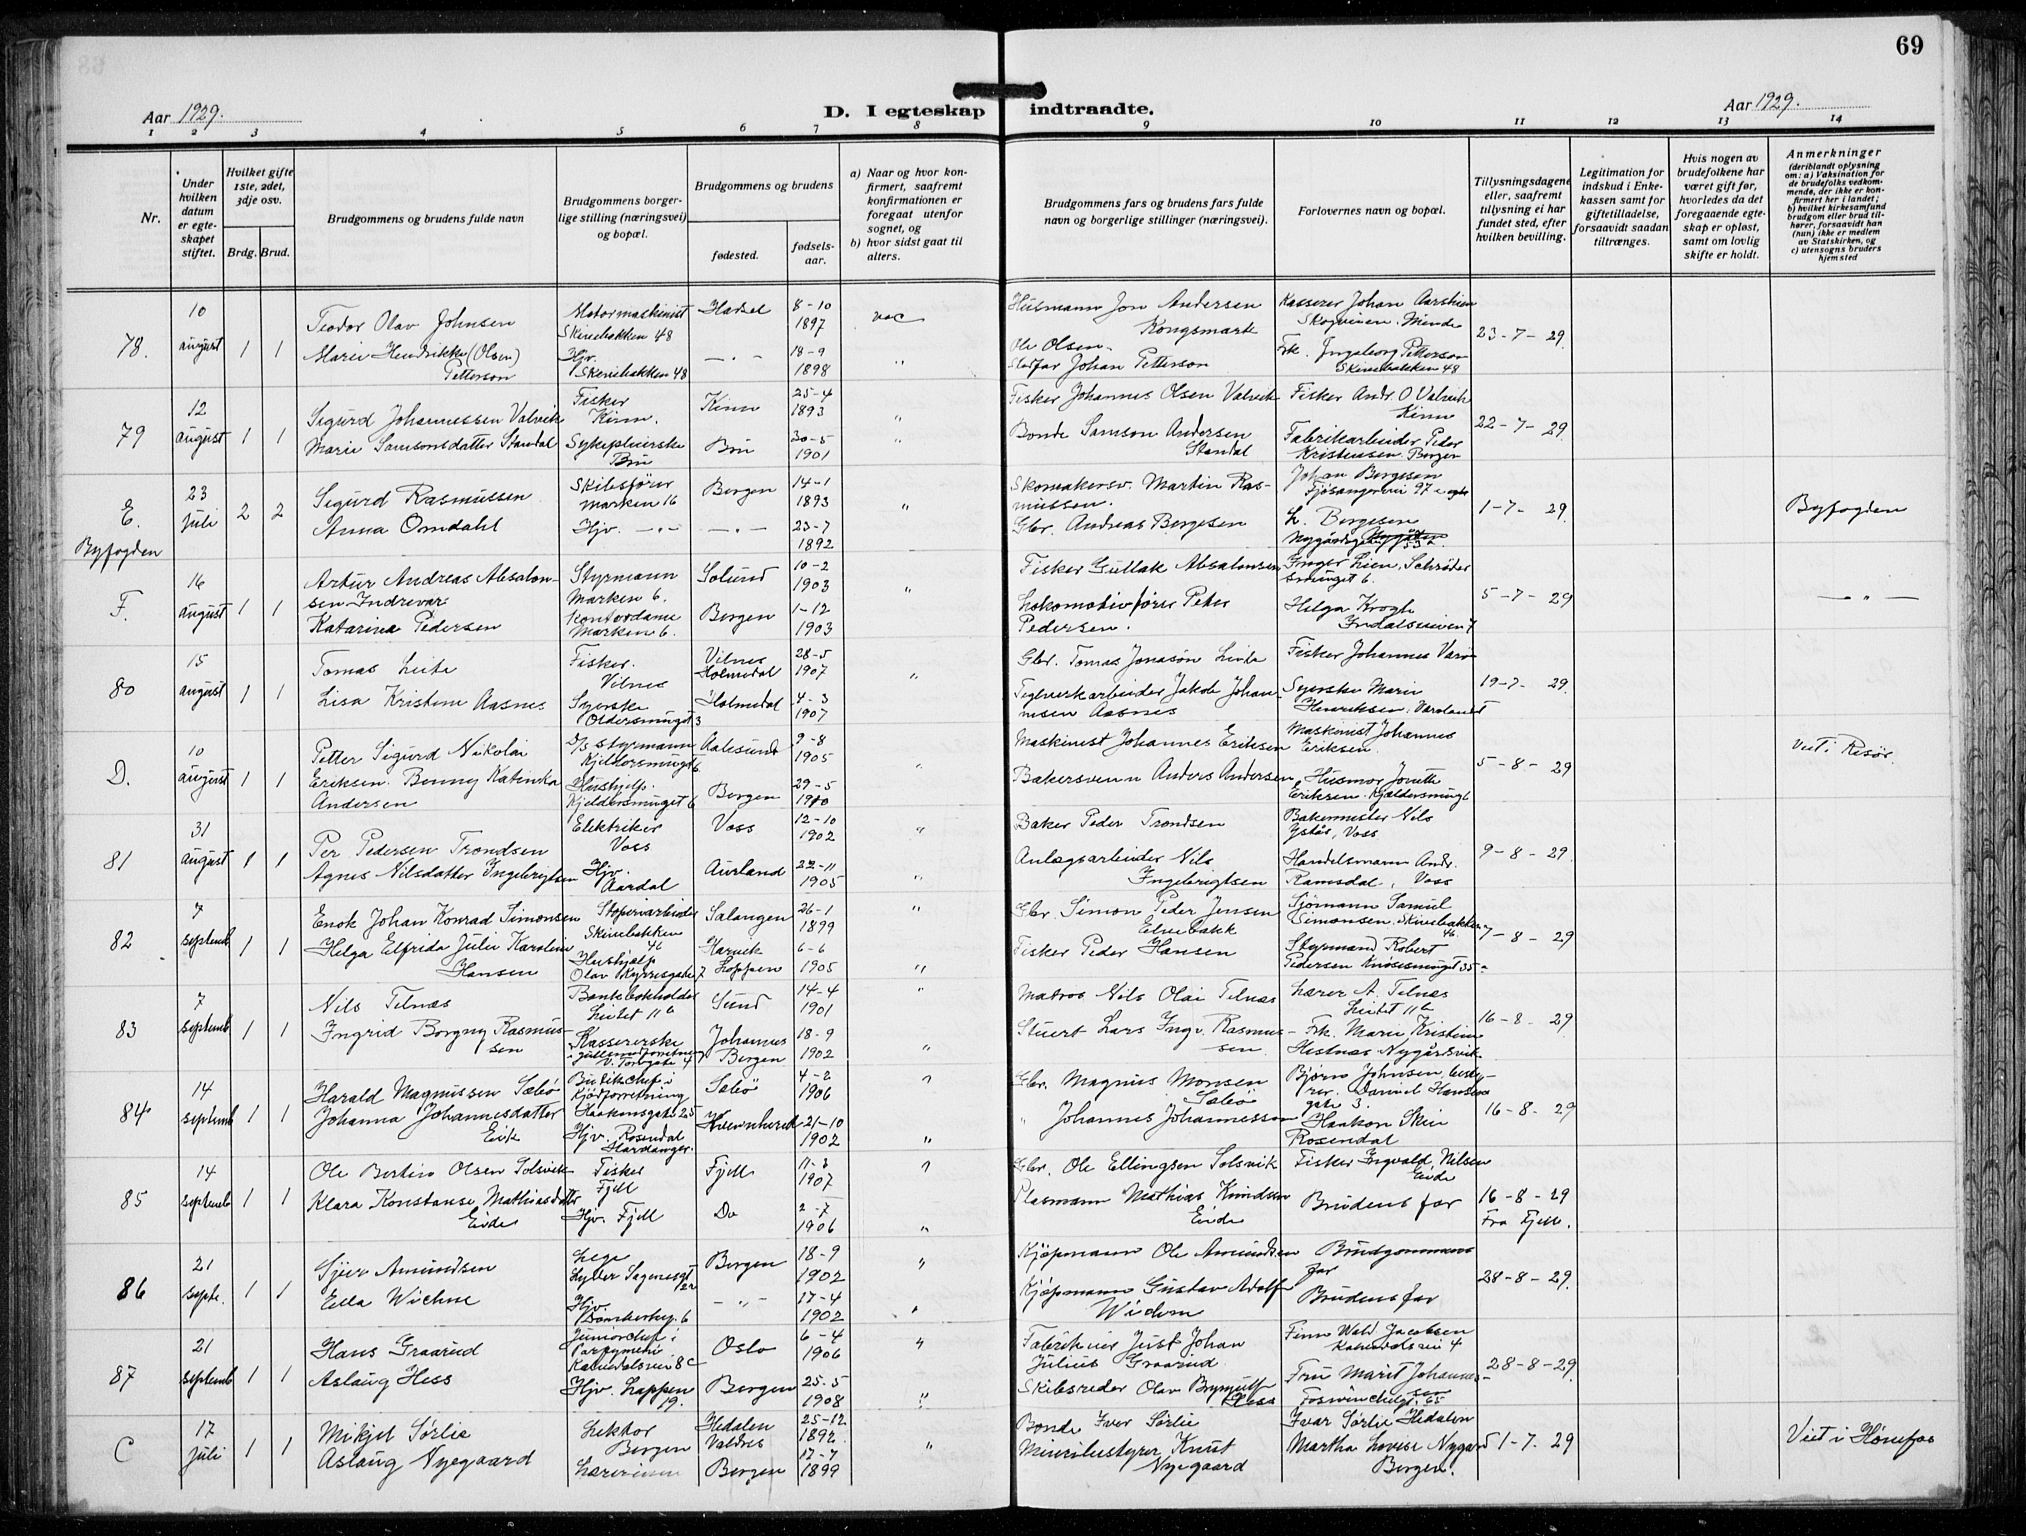 69
Aar 1929.
D. I egteskap indtraadte.
Aar 1929.
1 2 3 4 5 6 7 8 9 10 11 12 13 14
Nr.
Under hvilken datum er egteskapet stiftet.
Hvilket gifte 1ste, 2det, 3dje osv.
Brdg. Brud.
Brudgommens og brudens fulde navn
Brudgommens borgerlige stilling (næringsvei) og bopæl.
Brudgommens og brudens
fødested.
fødselsaar.
a) Naar og hvor konfirmert, saafremt konfirmationen er foregaat utenfor sognet, og
b) hvor sidst gaat til alters.
Brudgommens fars og brudens fars fulde navn og borgerlige stillinger (næringsvei).
Forlovernes navn og bopæl.
Tillysningsdagene eller, saafremt tillysning ei har fundet sted, efter hvilken bevilling.
Legitimation for indskud i Enkekassen samt for giftetilladelse, forsaavidt saadan tiltrænges.
Hvis nogen av brudefolkene har været gift før, hvorledes da det foregaaende egteskap er opløst, samt om lovlig skifte er holdt.
Anmerkninger
(deriblandt oplysning om: a) Vaksination for de brudefolks vedkommende, der ikke er konfirmert her i landet; b) hvilket kirkesamfund brudgom eller brud tilhører, forsaavidt han (hun) ikke er medlem av Statskirken, og c) utensogns bruders hjemsted
78. 10 august 1 1
Teodor Olav Johnsen Motormaskinist Skivebakken 48 Hadsel 8-10 1897 vac
Marie Hendrikke (Olsen) Petterson Hjv. Skivebakken 48 — " — 18-9 1898 "
Husmann Jon Andersen Kongsmark
Ole Olsen. Stedfar Johan Petterson
Kasserer Johan Skogveien. Minde
Frk. Ingeborg Petterson Skivebakken 48
23-7-29
79 12 august 1 1
Sigurd Johannessen Valvik Fisker Kinn. Kinn 25-4 1893 "
Marie Samsonsdatter Standal Sykepleierske Bru Bru 30-5 1901 "
Fisker Johannes Olsen Valvik
Bonde Samson Andersen Standal
Fisker Andr. O Valvik Kinn
Fabrikarbeider Peder Kristensen. Bergen
22-7-29
E. Byfogden 23 Juli 2 2
Sigurd Rasmussen Skibsfører Marken 16 Bergen 14-1 1893 "
Anna Omdahl Hjv. — " — — " — 23-7 1892
Skomakersv. Martin Rasmussen
Gbr. Andreas Bergesen
Johan Bergesen Fjøsangerveien 97
L. Bergesen Nygårdsgaten
1-7-29
Byfogden
F. 16 august 1 1
Artur Andreas Absalonsen Indrevær Styrmann Marken 6. Solund 10-2 1903 "
Katarina Pedersen Kontordame Marken 6. Bergen 1-12 1903
Fisker Gullak Absalonsen
Lokomotivfører Peter Pedersen.
Inger Lien, Schrøder smuget 6.
Helga Krogh Indalsveien 7
5-7-29
— " —
80 15 august 1 1
Tomas Leite Fisker. Vilnes Vilnes Holmedal 28-5 1907 "
Lisa Kristine Aasnes Syerske Oldersmuget 3 Holmedal 4-3 1907
Gbr. Tomas Jonasøn Leite
Teglverkarbeider Jakob Johannesen Aasnes
Fisker Johannes Varø
Syerske Marie Henriksen. Værlandet
19-7-29
D. 10 august 1 1
Petter Sigurd Nikolai Eriksen. D/s Styrmann Kjeldersmuget 6 Aalesund 9-8 1905 "
Benny Katinka Andersen Hushjelp. Kjeldersmuget 6 Bergen 29-5 1910
Maskinist Johannes Eriksen
Bakersvenn Anders Andersen
Maskinist Johannes Eriksen.
Husmor Jonette Eriksen. Kjældersmug 6
5-8-29
Viet i Risør.
81 31 august 1 1
Per Pedersen Trondsen Elektriker Voss Voss 12-10 1902 "
Agnes Nilsdatter Ingebrigtsen Hjv. Aardal Aurland 22-11 1905 "
Baker Peder Trondsen
Anlægsarbeider Nils Ingebrigtsen
Bakermester Nils Ystås, Voss
Handelsmann Andr. Ramsdal, Voss
9-8-29
82 7 septemb 1 1
Enok Johan Konrad Simonsen Støperiarbeider Skivebakken 46 Salangen 26-1 1899 "
Helga Elfrida Julie Karoline Hansen Hushjelp Olav Kyrresgate 7 Loppen 6-6 1905 "
Gbr. Simon Peder Jensen Elvebakk
Fisker Peder Hansen
Sjømann Samuel Simonsen. Skivebakken 46.
Styrmand Robert Pedersen Knøsesmuget 35
7-8-29
83 7 septemb 1 1
Nils Telnæs Bankbokholder Leitet 11b Sund 14-4 1901 "
Ingrid Borgny Rasmussen Kassererske Johannes Bergen 18-9 1902 "
Matros Nils Olai Telnæs
Stuert Lars Ingv. Rasmussen.
Lærer A. Telnæs Leitet 11b
Frk. Marie Kristine Hestnes Nygårdsvik
16-8-29
84 14 septemb 1 1
Harald Magnussen Sæbø Butikchef i Kjødforretning Haakonsgate 25 Sæbø 4-2 1906 "
Johanna Johannesdatter Eik Hjv. Rosendal Hardanger. Kvinnherad 21-10 1902 "
Gbr. Magnus Monsen Sæbø
" Johannes Johannesson
Bjørn Johnsen, Daniel Hansens gate 3.
Haakon Skei Rosendal
16-8-29
85 14 septemb 1 1
Ole Bertin Olsen Solsvik Fisker Fjell Fjell 11-3 1907 "
Klara Konstanse Mathiasdatter Eide Hjv. Fjell Do 2-7 1906 "
Gbr. Ole Ellingsen Solsvik
Plasmann Mathias Knudsen Eide
Fisker Ingvald Nilsen Eide
Brudens far
16-8-29 Fra Fjell.
86 21 septe. 1 1
Sjur Amundsen Lege Lyder Sagensgt Bergen 18-9 1902 "
Ella Wichne Hjv. 6 — " — 17-4 1902 "
Kjøpmann Ole Amundsen
Kjøpmann Gustav Adolf
Brudgommens far
Brudens far
28-8-29
87 21 septemb 1 1
Hans Graarud Juniorchef i Parfymeri Kalvedalsvei 8c Oslo 6-4 1906 "
Aslaug Hess Hjv. Lappen 19. Bergen 25-5 1908 "
Fabrikeier Just Johan Julius Graarud
Skibsreder Olav Brynulf Hess
Finn Wald Jacobsen Kalvedalsvei 4
Fru Marit Johannessen 65
28-8-29
C 17 Juli 1 1
Mikjel Sørlie Lektor Bergen Hedalen Valdres 25-12 1892 "
Aslaug Nyegaard Lærerinne Bergen 17-7 1899
Bonde Iver Sørlie
Knut Nyegaard
Ivar Sørlie Hedalen
Martha Lovise Nygård Bergen.
1-7-29
Viet i Hønefos